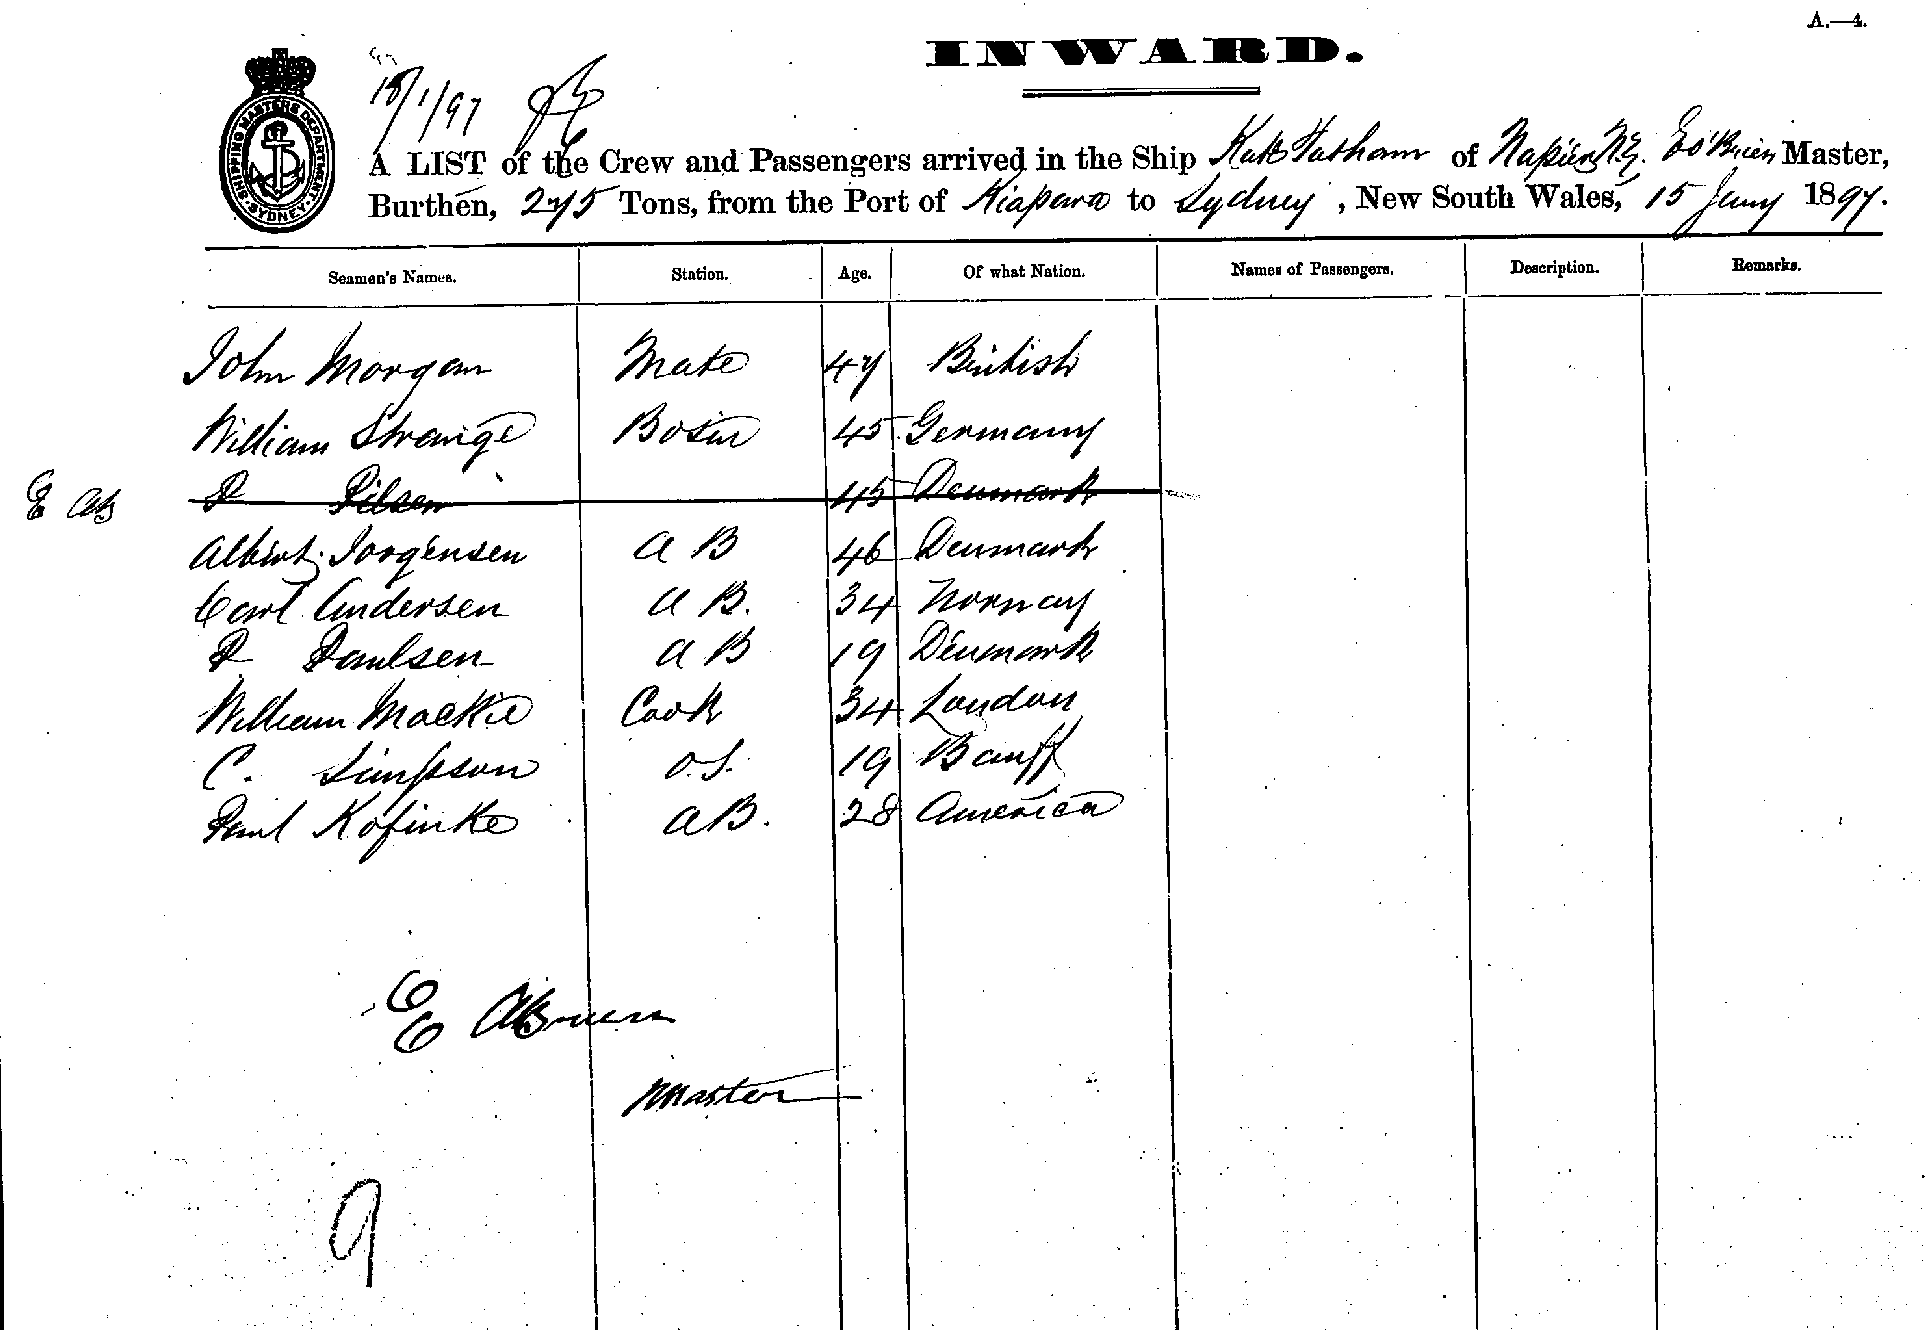 A.—4.
INWARD.
SHIPPING MASTERS DEPARTMENT. SYDNEY.
18/1/97
A LIST of the Crew and Passengers arrived in the Ship Kate Tatham of Napier N.Z. E O'Brien Master,
Burthen, 275 Tons, from the Port of Kiapara to Sydney, New South Wales, 15 Jany 1897.
Seamen's Names. Station. Age. Of what Nation. Names of Passengers. Description. Remarks.
John Morgan Mate 47 British
William Strange Bosun 45 Germany
P Pilsen 45 Denmark
Albert Jorgensen A B 46 Denmark
Carl Andersen A B. 34 Norway
P Paulsen A B 19 Denmark
William Mackie Cook 34 London
C. Simpson O.S. 19 Banff
Paul Kofinke A B. 28 America
E OBrien
Master
9